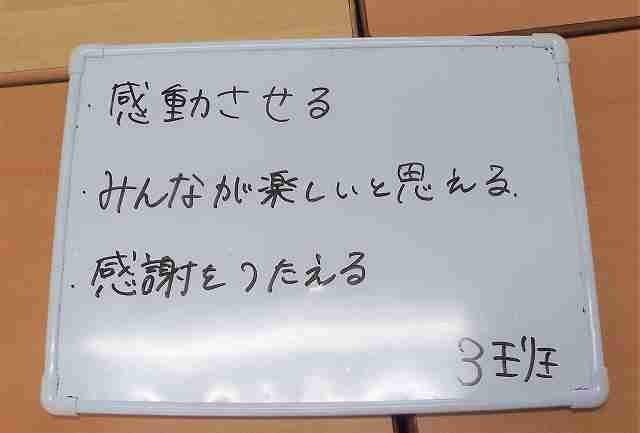 ・感動させる
・みんなが楽しいと思える。
・感謝をつたえる
3班